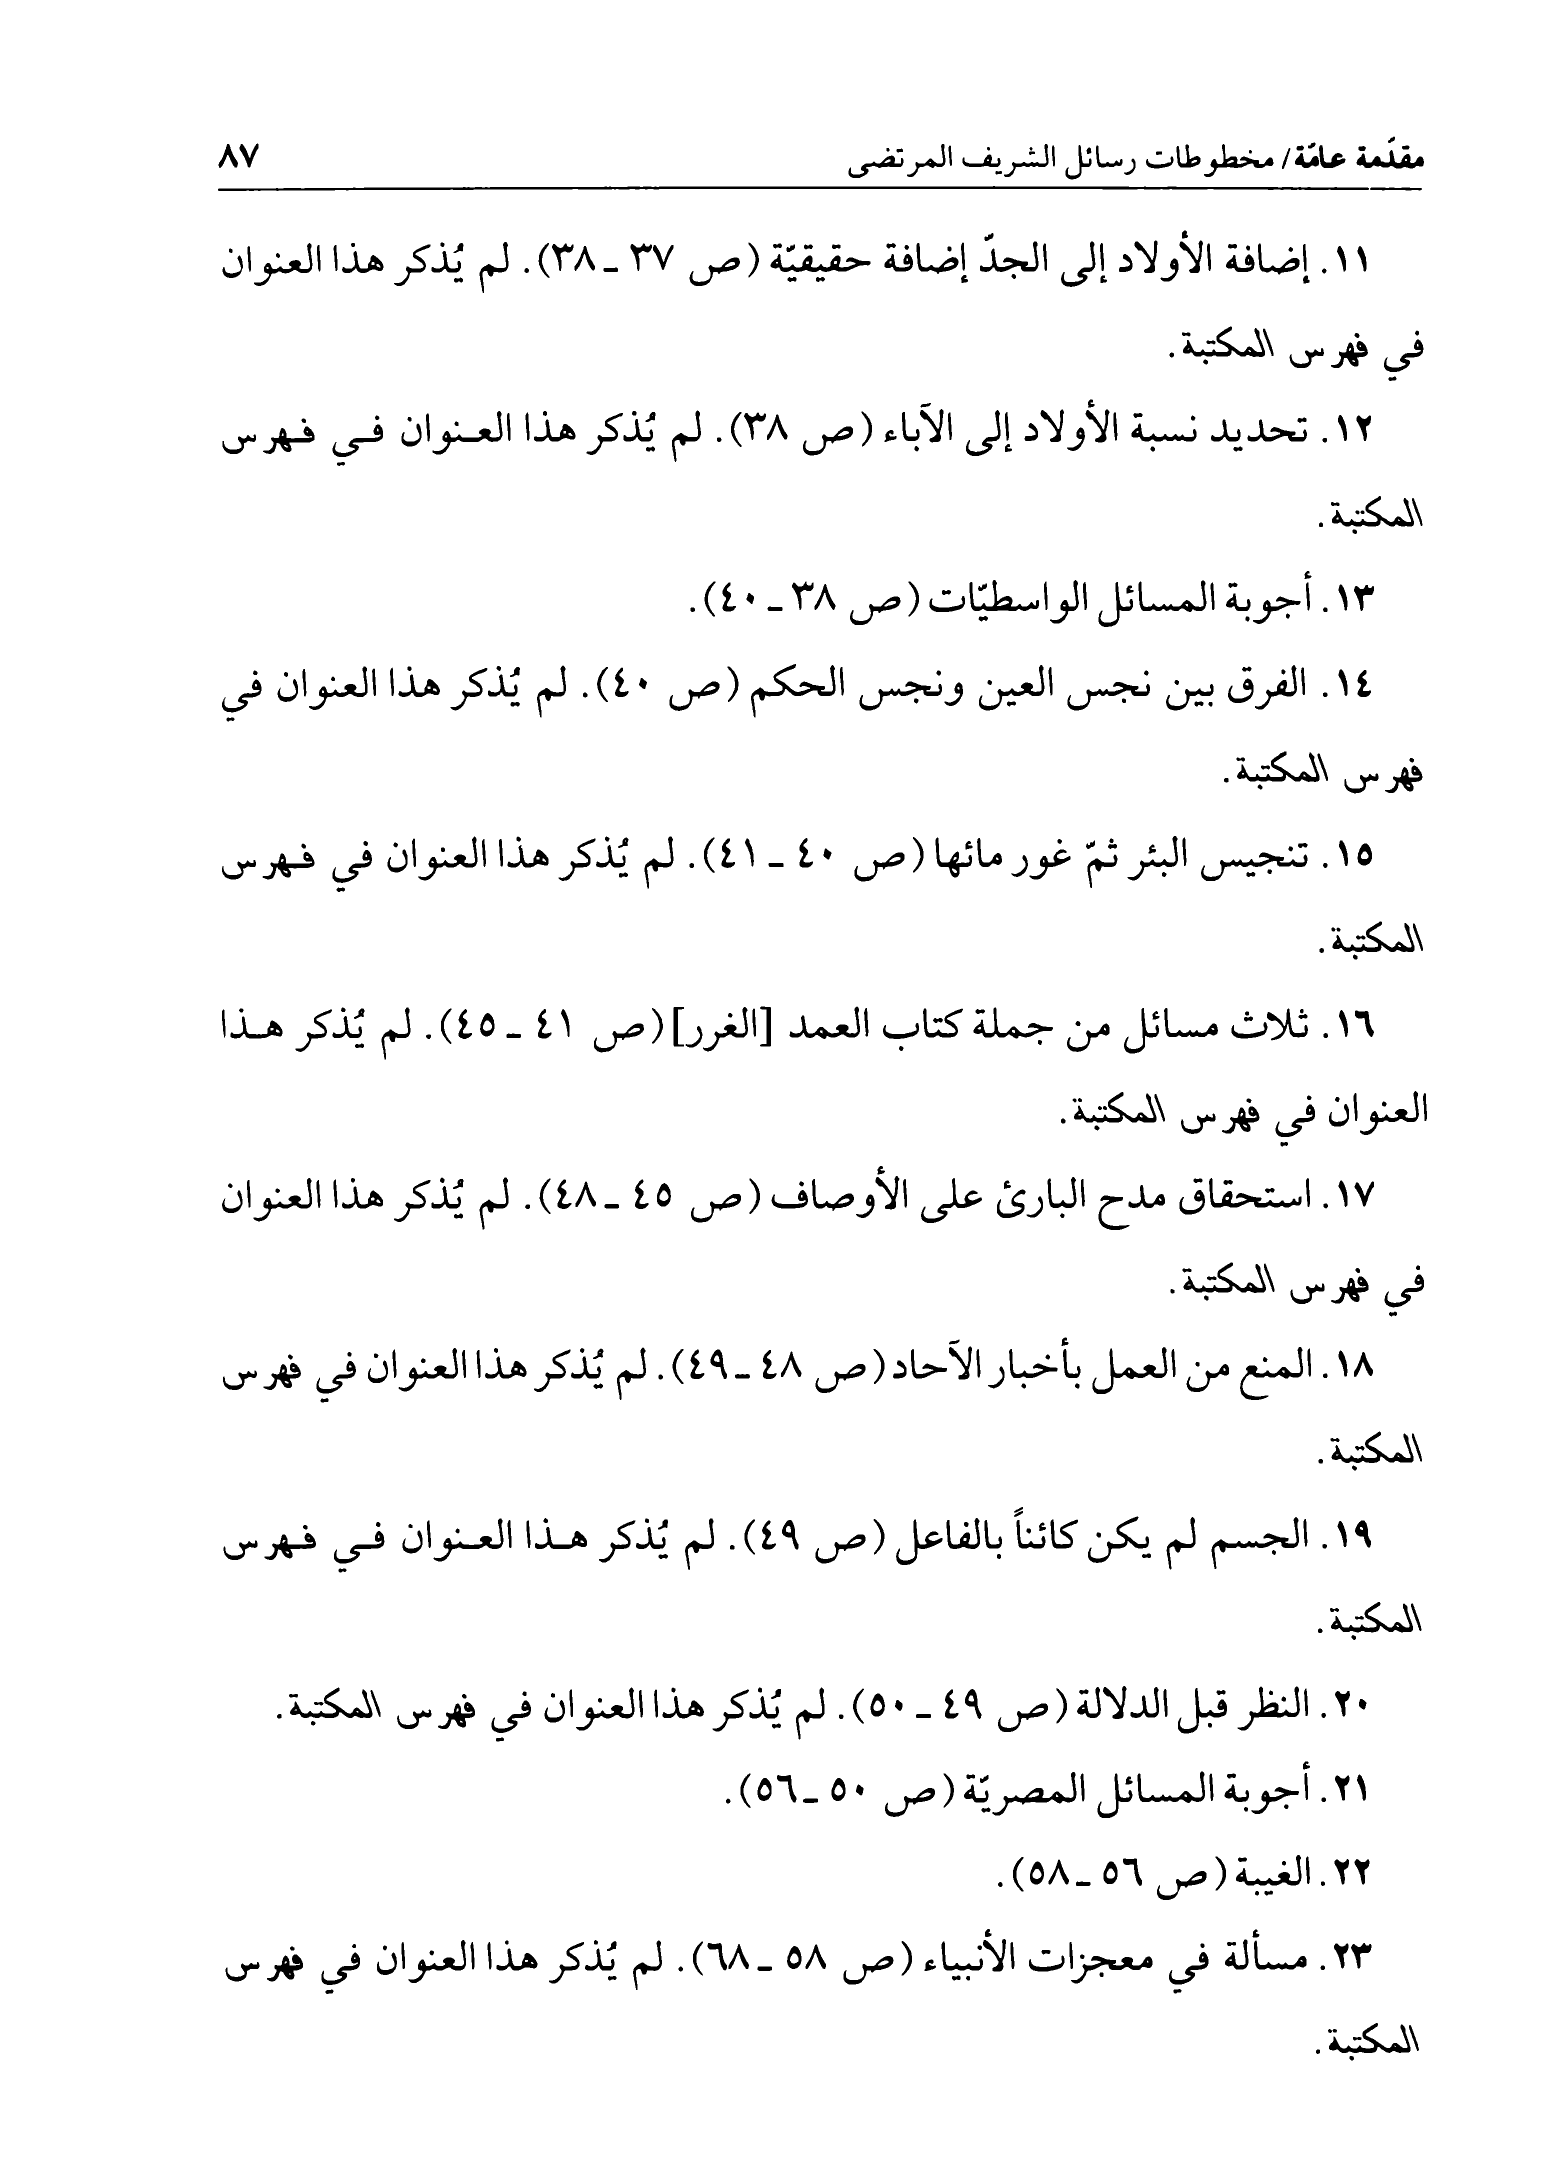 مقدّمة عامّة/ مخطوطات رسائل الشريف المرتضى ٨٧
١١. إضافة الأولاد إلى الجدّ إضافة حقيقيّة (ص ٣٧ ـ ٣٨). لم يُذكر هذا العنوان
في فهرس المكتبة.
١٢. تحديد نسبة الأولاد إلى الآباء (ص ٣٨). لم يُذكر هذا العنوان في فهرس
المكتبة.
١٣. أجوبة المسائل الواسطيّات (ص ٣٨ ـ ٤٠).
١٤. الفرق بين نجس العين ونجس الحكم (ص ٤٠). لم يُذكر هذا العنوان في
فهرس المكتبة.
١٥. تنجيس البئر ثمّ غور مائها (ص ٤٠ ـ ٤١). لم يُذكر هذا العنوان في فهرس
المكتبة.
١٦. ثلاث مسائل من جملة كتاب العمد [الغرر] (ص ٤١ ـ ٤٥). لم يُذكر هذا
العنوان في فهرس المكتبة.
١٧. استحقاق مدح البارئ على الأوصاف (ص ٤٥ ـ ٤٨). لم يُذكر هذا العنوان
في فهرس المكتبة.
١٨. المنع من العمل بأخبار الآحاد (ص ٤٨ ـ ٤٩). لم يُذكر هذا العنوان في فهرس
المكتبة.
١٩. الجسم لم يكن كائناً بالفاعل (ص ٤٩). لم يُذكر هذا العنوان في فهرس
المكتبة.
٢٠. النظر قبل الدلالة (ص ٤٩ ـ ٥٠). لم يُذكر هذا العنوان في فهرس المكتبة.
٢١. أجوبة المسائل المصريّة (ص ٥٠ ـ ٥٦).
٢٢. الغيبة (ص ٥٦ ـ ٥٨).
٢٣. مسألة في معجزات الأنبياء (ص ٥٨ ـ ٦٨). لم يُذكر هذا العنوان في فهرس
المكتبة.